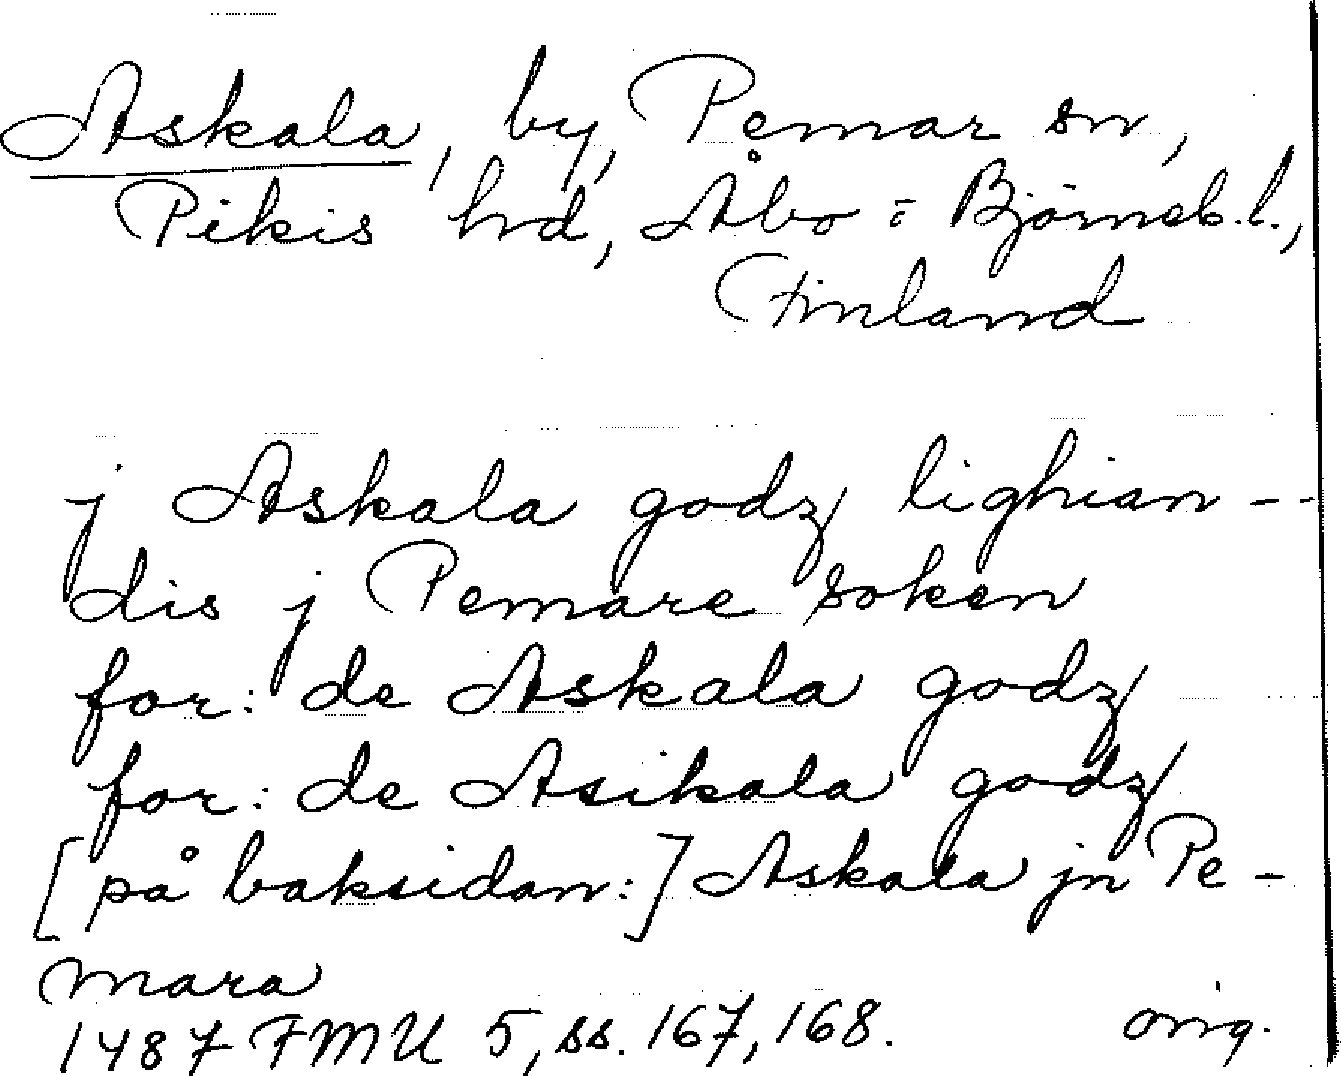 Askala, by, Pemar sn,
Pikis hd, Åbo o Björneb. l.,
Finland
j Askala godz lighian-
dis j Pemare soken
for: de Askala godz
for: de Asikala godz
[på baksidan:] Askala jn Pe-
mara
1487 FMU 5, ss. 167, 168. orig.